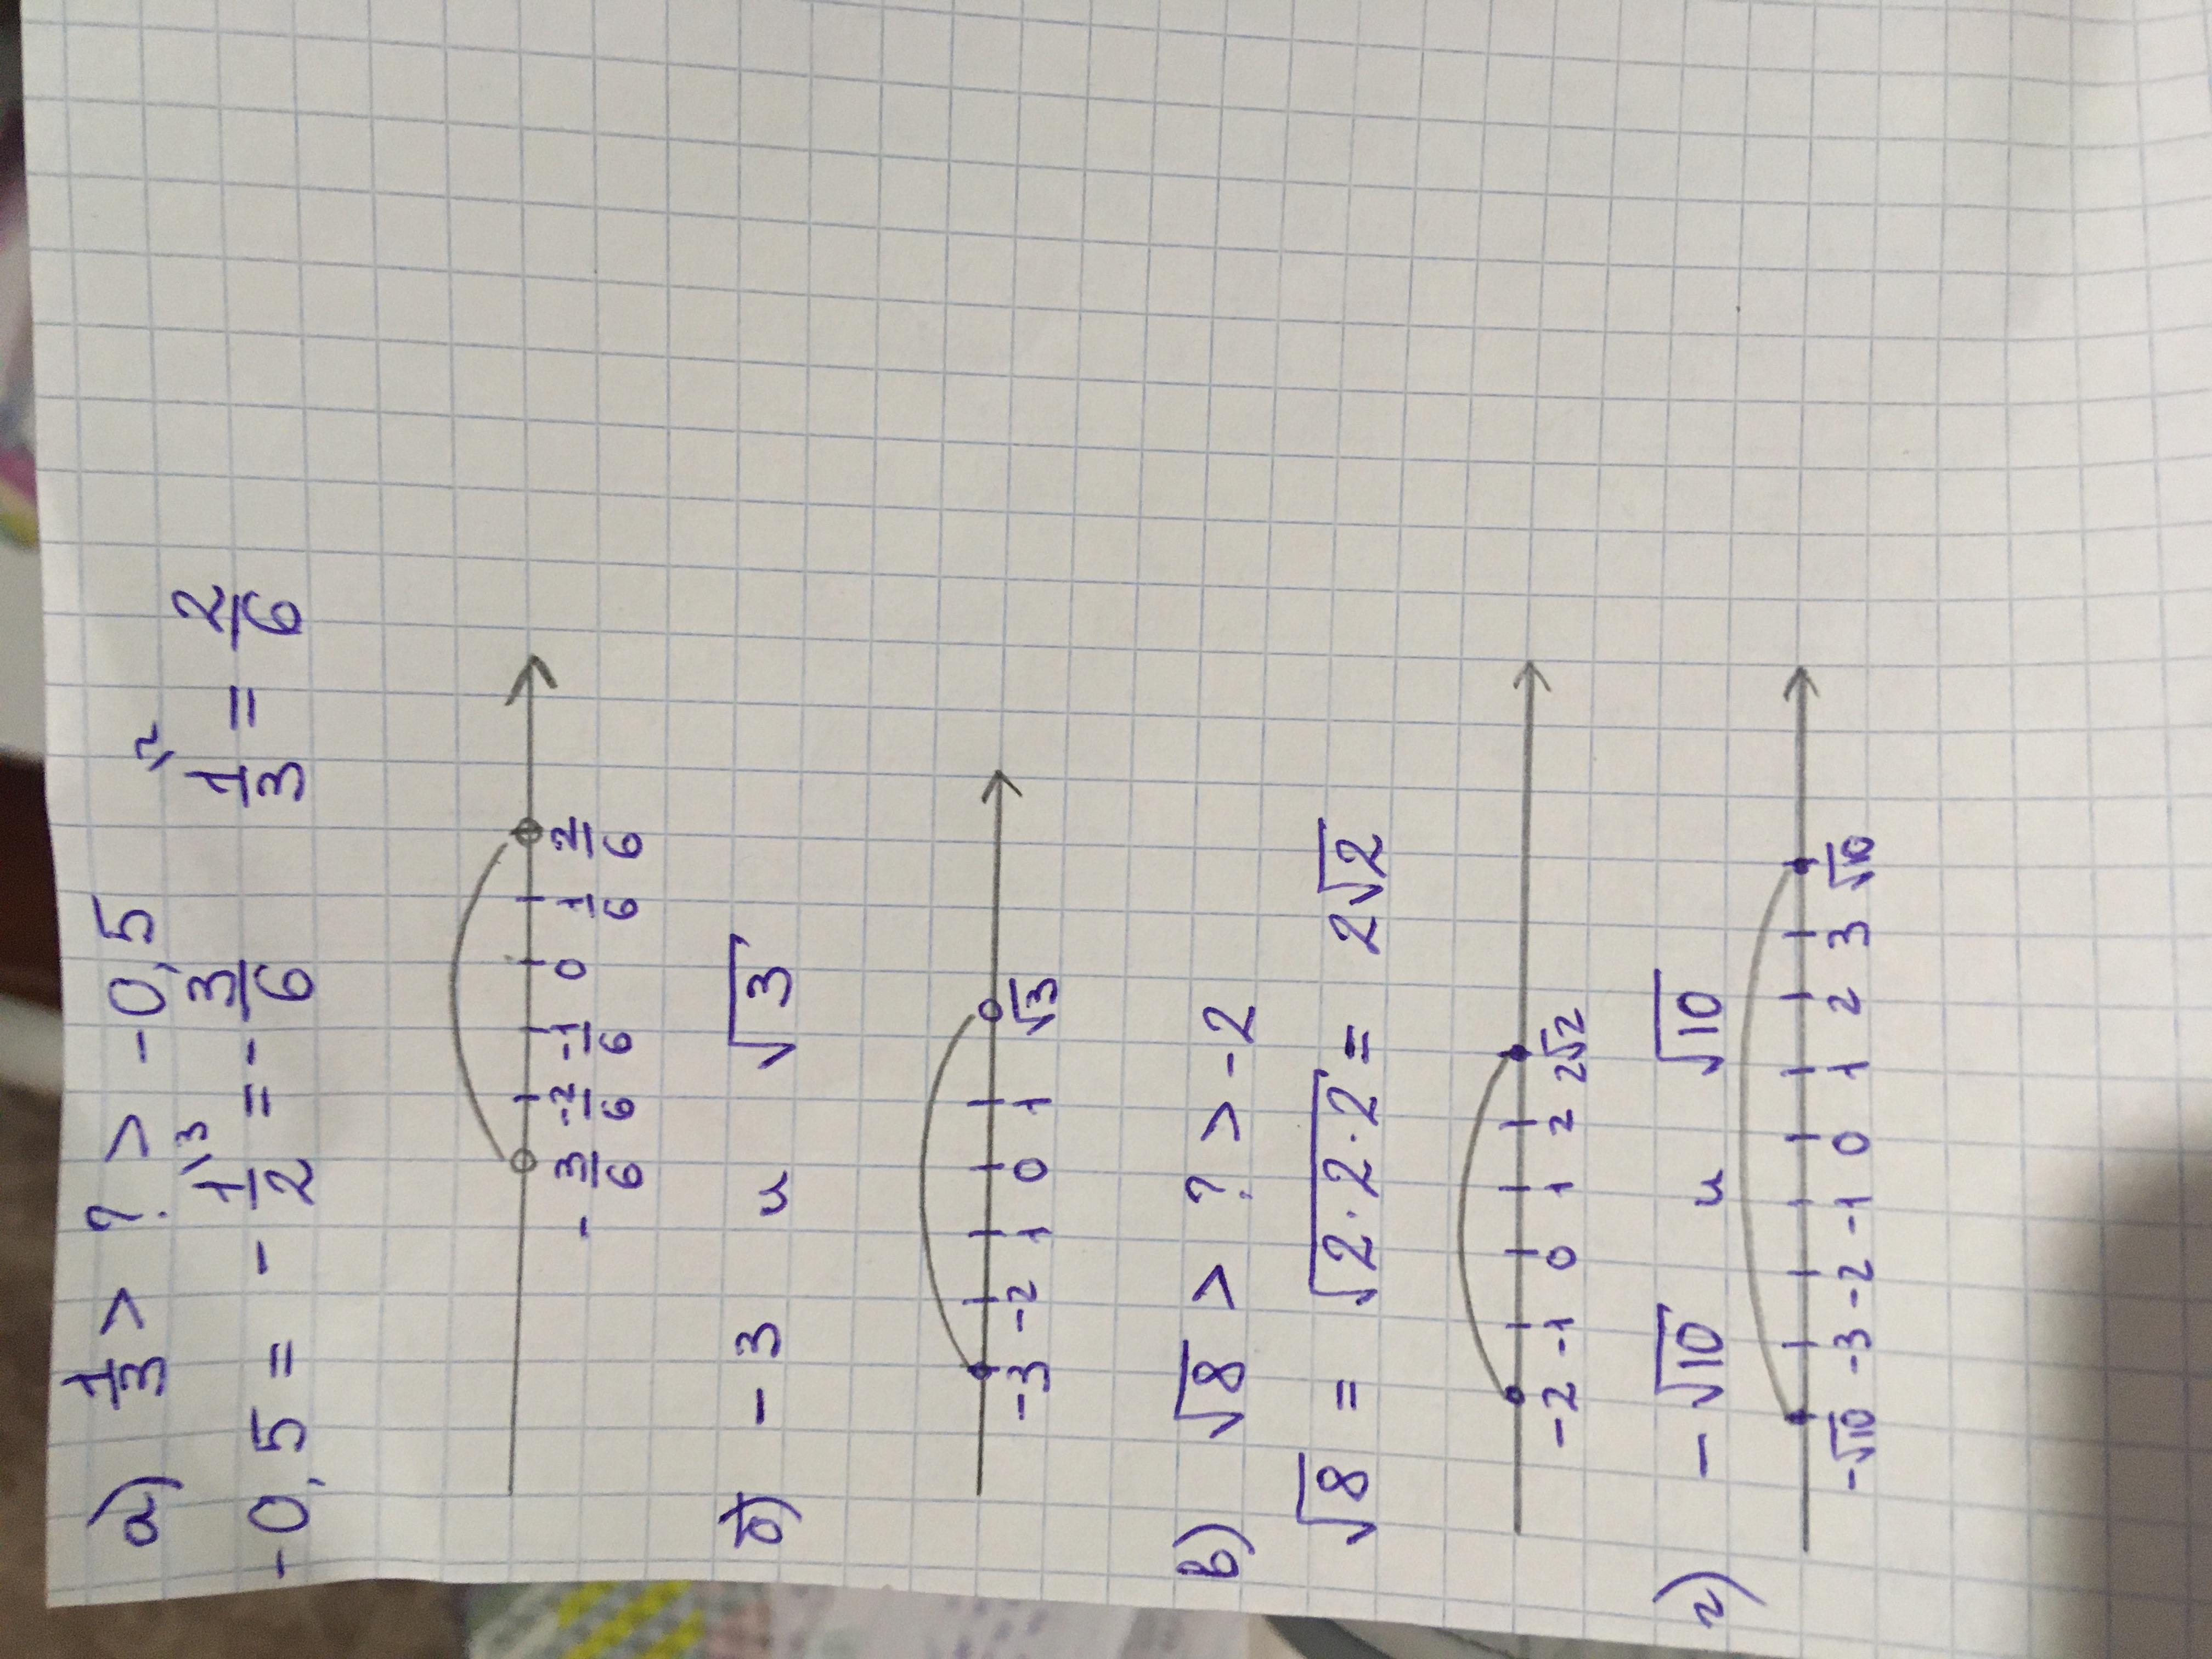 а) 1/3 > ? > -0,5
-0,5 = - 1/2 \3 = - 3/6 1/3 \2 = 2/6
- 3/6 -2/6 -1/6 0 1/6 2/6
б) -3 и √3
-3 -2 1 0 1 √3
в) √8 > ? > -2
√8 = √2·2·2 = 2√2
-2 -1 0 1 2 2√2
г) -√10 и √10
-√10 -3 -2 -1 0 1 2 3 √10